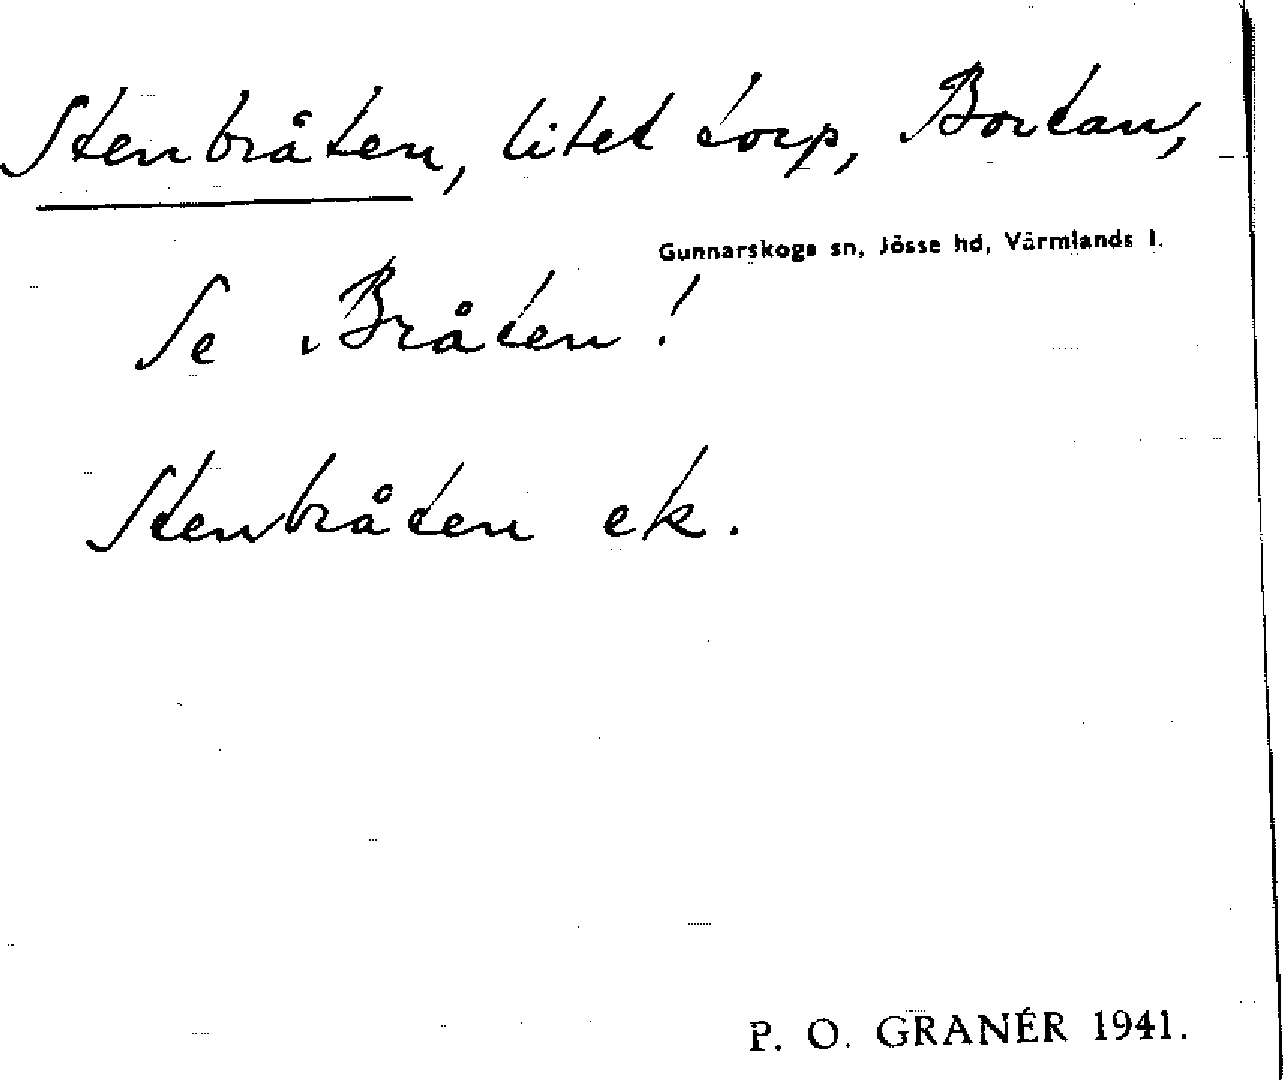 Stenbråten, litet torp, Bortan,
Gunnarskogs sn, Jösse hd, Värmlands l.
Se Bråten!
Stenbråten ek.
P. O. GRANÉR 1941.